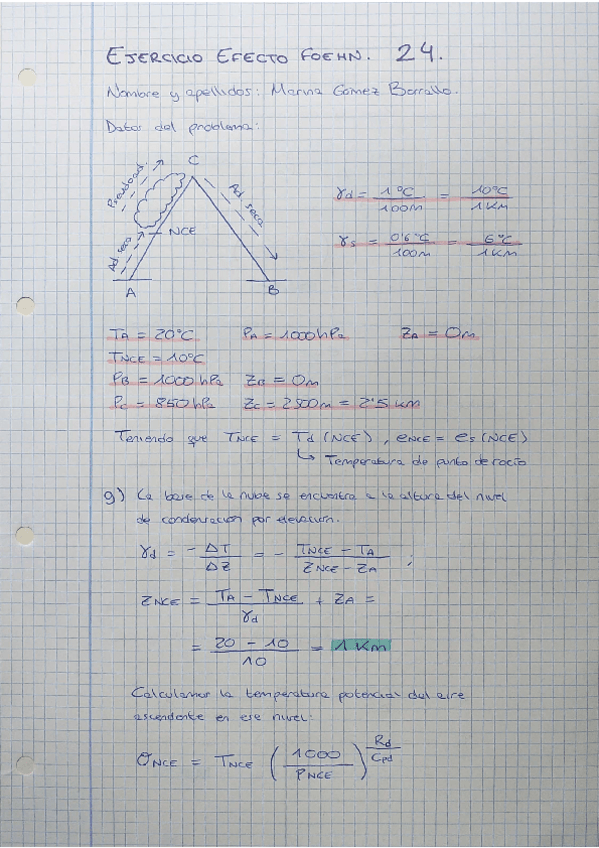 EJERCICIO EFECTO FOEHN. 24.
Nombre y apellidos: Marina Gómez Borrallo.
Datos del problema:
C
Pseudoad.
Ad seco
NCE
Ad seco
A
B
γd = 1°C / 100m = 10°C / 1Km
γs = 0'6°C / 100m = 6°C / 1Km
TA = 20°C PA = 1000hPa ZA = 0m
TNCE = 10°C
PB = 1000 hPa ZB = 0m
PC = 850 hPa ZC = 2500m = 2'5 Km
Teniendo que TNCE = Td (NCE) , eNCE = es (NCE)
↳ Temperatura de punto de rocío
g) La base de la nube se encuentra a la altura del nivel
de condensación por elevación.
γd = -ΔT / ΔZ = - (TNCE - TA) / (ZNCE - ZA) ;
ZNCE = (TA - TNCE) / γd + ZA =
= (20 - 10) / 10 = 1 Km
Calculamos la temperatura potencial del aire
ascendente en ese nivel:
ΘNCE = TNCE (1000 / PNCE)^(Rd / Cpd)